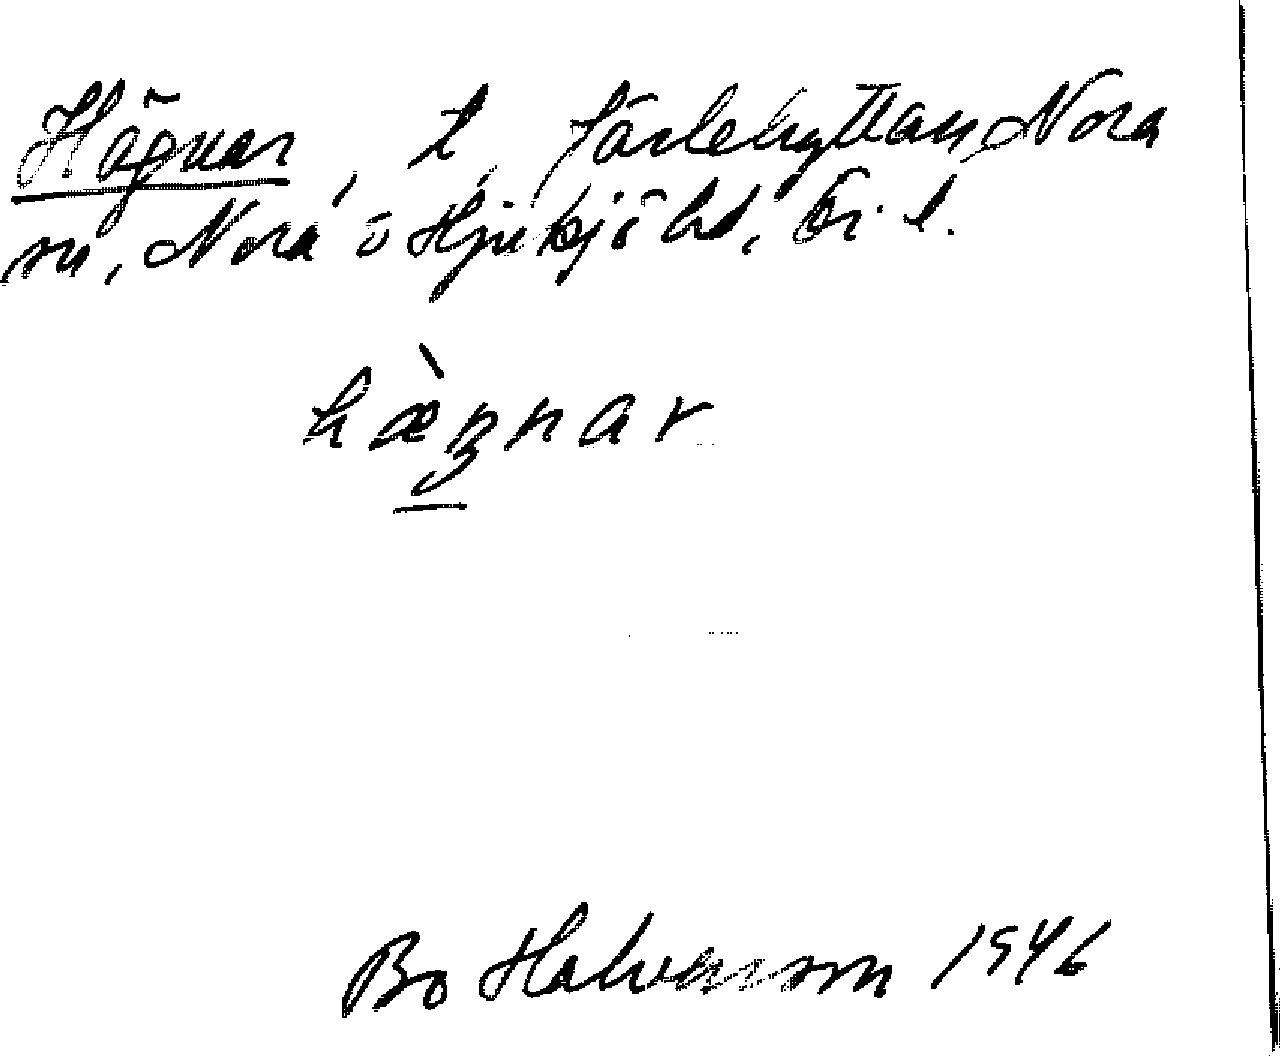 Hägnar, t, Järlehyttan, Nora
sn, Nora o Hjulsjö hd, Ör. l.
hæ̀ŋnar
Bo Halvarson 1946